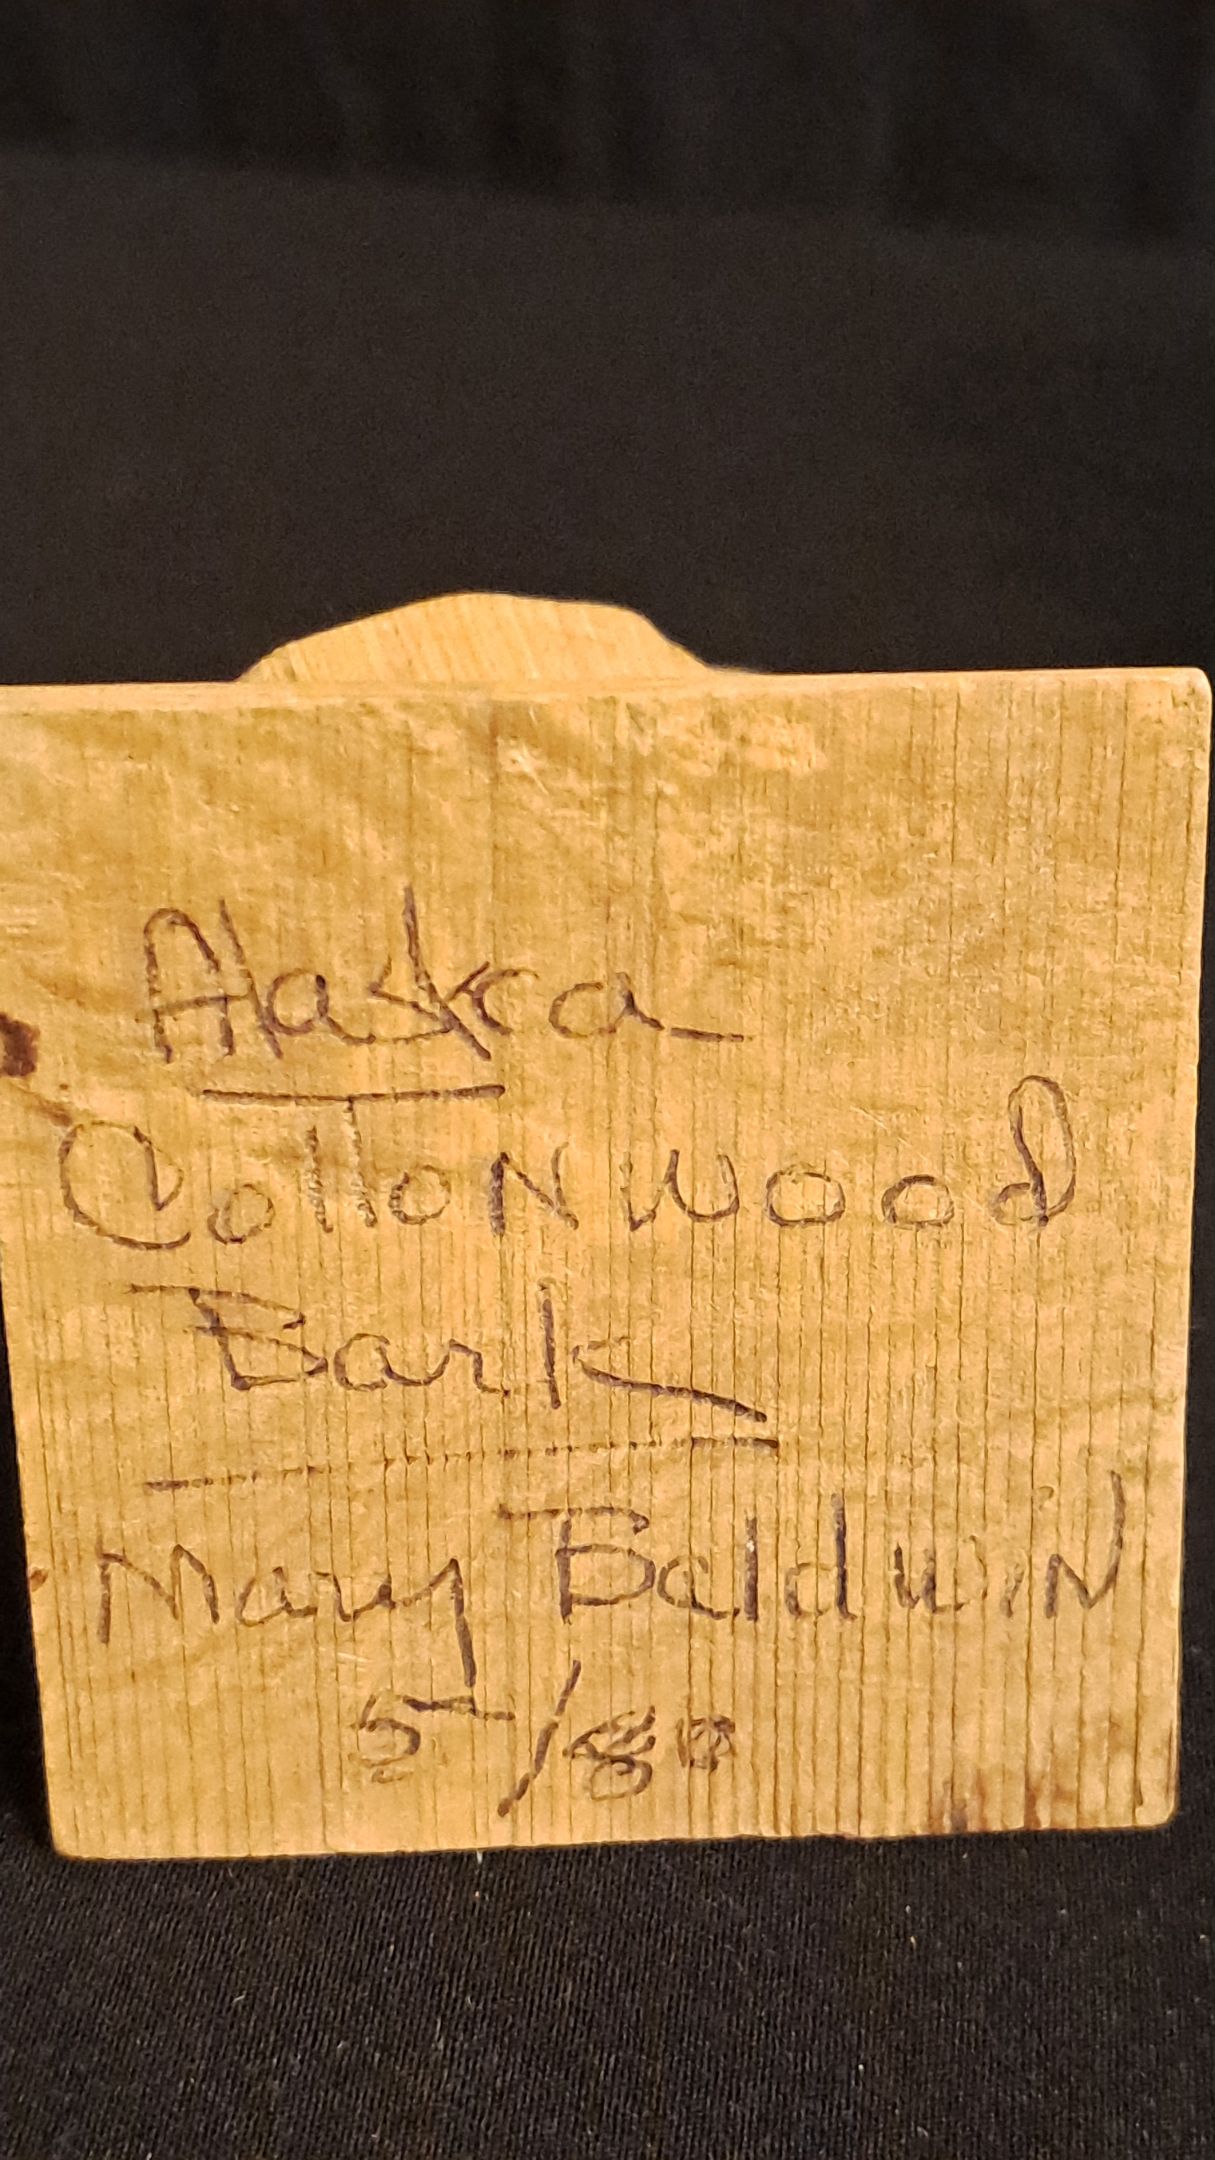 Alaska
CottonWood
Bark
Mary Baldwin
5/80